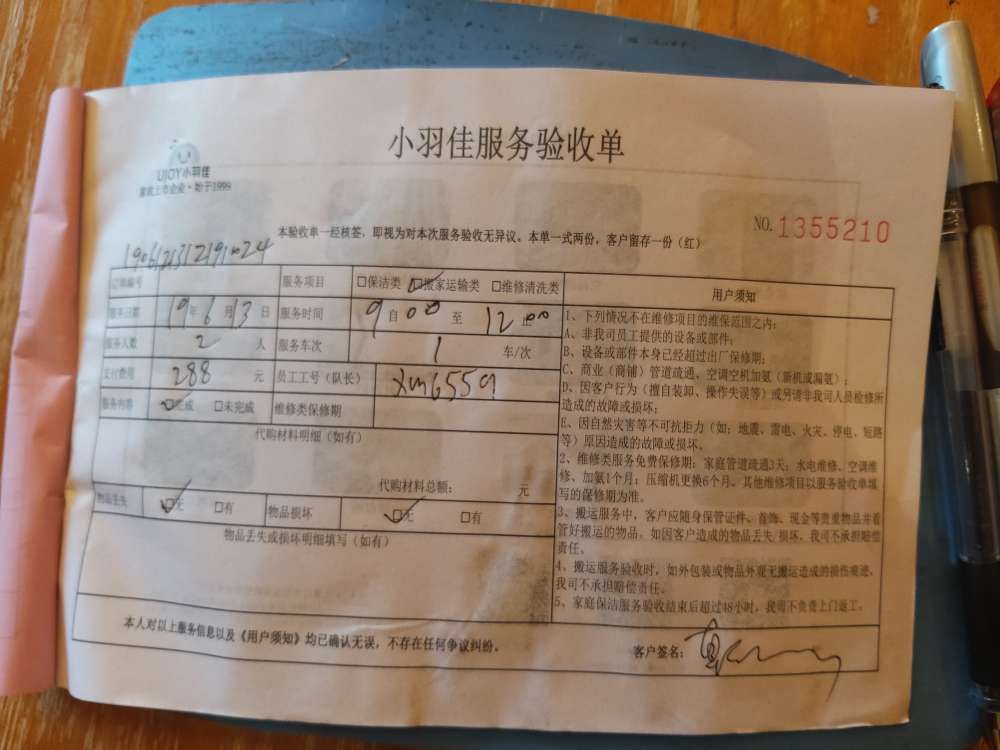 小羽佳服务验收单
UJOY小羽佳
家政上市企业·始于1999
NO.1355210
本验收单一经核签，即视为对本次服务验收无异议。本单一式两份，客户留存一份（红）
订单编号
服务项目 □保洁类 □搬家运输类 □维修清洗类
服务日期 19年6月13日 服务时间 9自00至12止00
服务人数 2 人 服务车次 1 车/次
支付费用 288 元 员工工号（队长） xm6559
服务内容 □完成 □未完成 维修类保修期
代购材料明细（如有）
代购材料总额： 元
物品丢失 □无 □有 物品损坏 □无 □有
物品丢失或损坏明细填写（如有）
用户须知
1、下列情况不在维修项目的维保范围之内：
A、非我司员工提供的设备或部件；
B、设备或部件本身已经超过出厂保修期；
C、商业（商铺）管道疏通，空调空机加氨（新机或漏氨）；
D、因客户行为（擅自装卸、操作失误等）或另请非我司人员检修所
造成的故障或损坏；
E、因自然灾害等不可抗拒力（如：地震、雷电、火灾、停电、短路
等）原因造成的故障或损坏。
2、维修类服务免费保修期：家庭管道疏通3天；水电维修、空调维
修、加氨1个月；压缩机更换6个月。其他维修项目以服务验收单填
写的保修期为准。
3、搬运服务中，客户应随身保管证件、首饰、现金等贵重物品并看
管好搬运的物品。如因客户造成的物品丢失/损坏，我司不承担赔偿
责任。
4、搬运服务验收时，如外包装或物品外观无搬运造成的损伤痕迹，
我司不承担赔偿责任。
5、家庭保洁服务验收结束后超过48小时，我司不负责上门返工。
本人对以上服务信息以及《用户须知》均已确认无误，不存在任何争议纠纷。
客户签名：